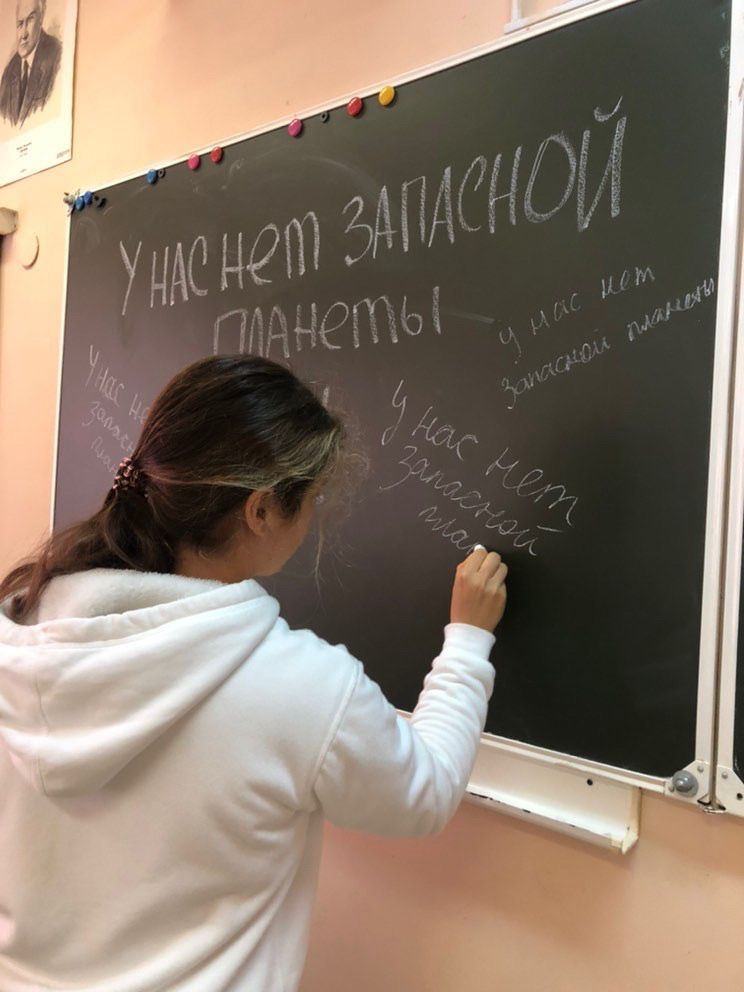 У НАС НЕТ ЗАПАСНОЙ
ПЛАНЕТЫ
у нас нет
запасной планеты
У нас
У нас нет
Запасной
пла